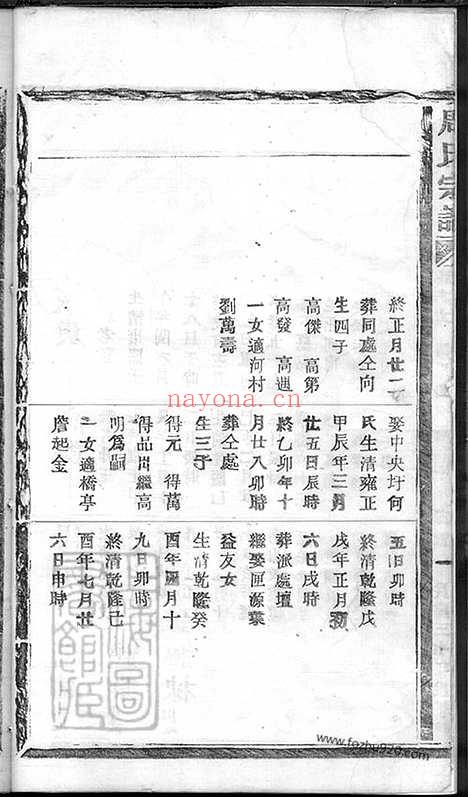 周氏宗譜
終正月廿二
葬同處仝向
生四子
高傑　高第
高發　高週
一女適河村
劉萬壽
娶中央圩何
氏生清雍正
甲辰年三月
廿五日辰時
終乙卯年十
月廿八卯時
葬仝處
生三子
得元　得萬
得品出繼高
明為嗣
一女適橋亭
詹起金
五日卯時
終清乾隆戊
戌年正月初
六日戌時
葬派處壇
繼娶匣源葉
益友女
生清乾隆癸
酉年四月十
九日卯時
終清乾隆己
酉年七月廿
六日申時
一
nayona.cn
www.fozhu920.com